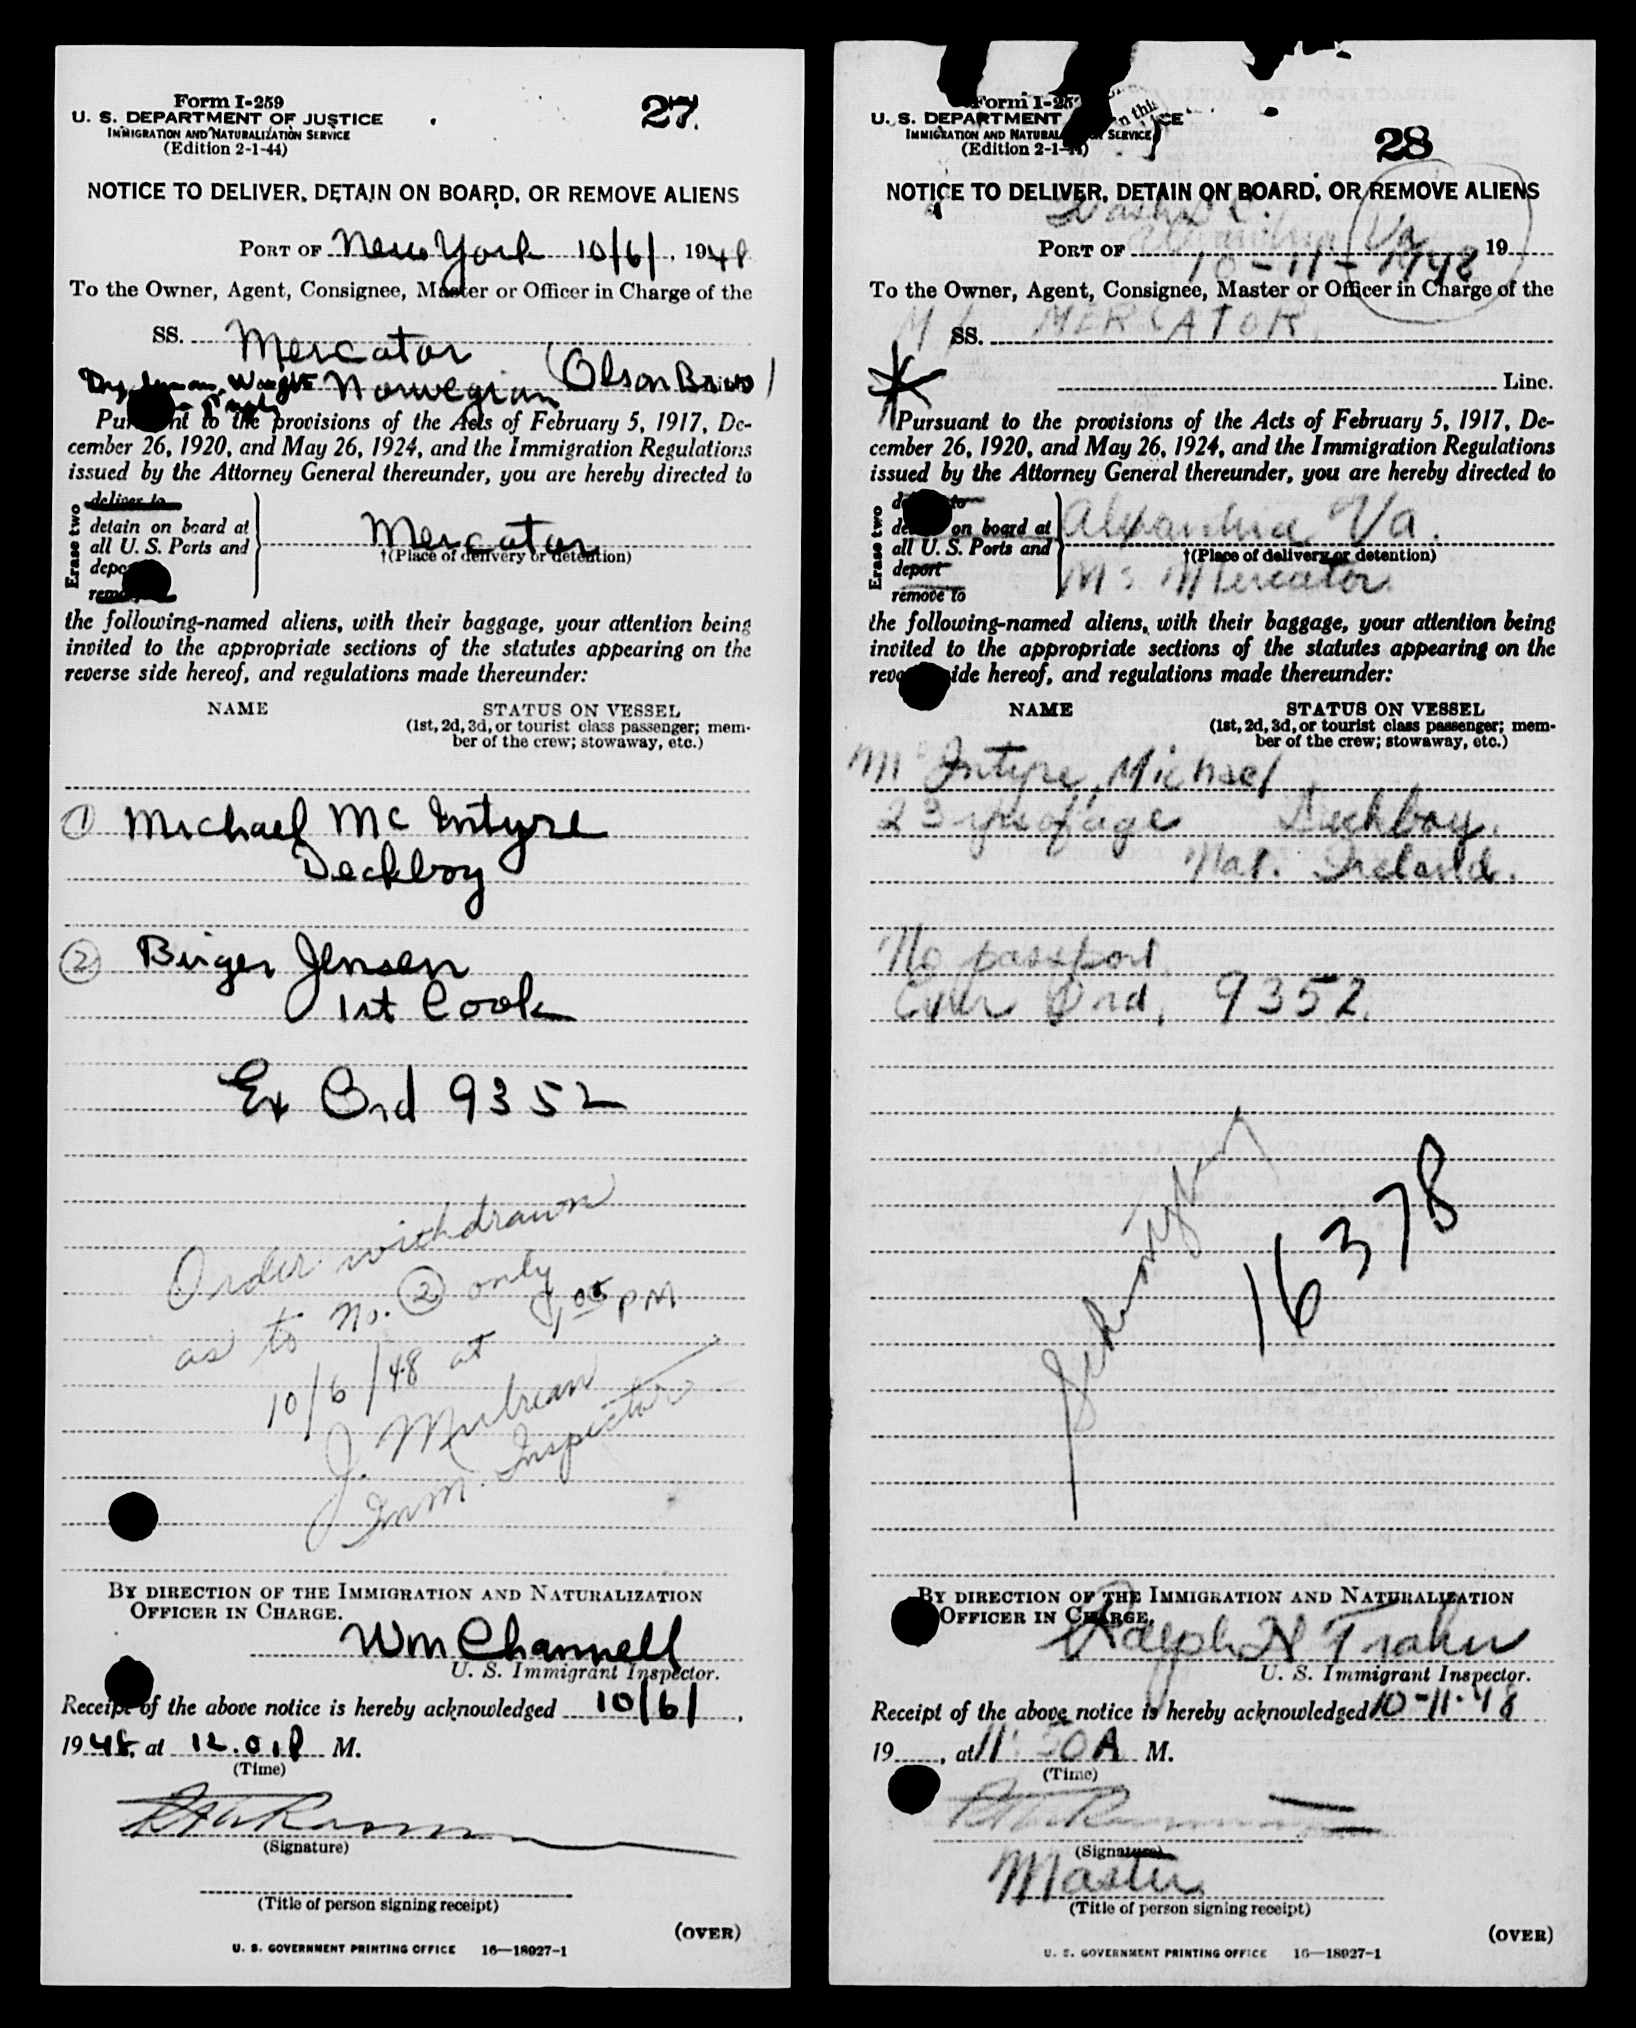 Form I-259
U. S. DEPARTMENT OF JUSTICE
IMMIGRATION AND NATURALIZATION SERVICE
(Edition 2-1-44)
27
NOTICE TO DELIVER, DETAIN ON BOARD, OR REMOVE ALIENS
PORT OF New York 10/6/, 1948
To the Owner, Agent, Consignee, Master or Officer in Charge of the
SS. Mercator
Norwegian (Olson Bros)
Pursuant to the provisions of the Acts of February 5, 1917, De-
cember 26, 1920, and May 26, 1924, and the Immigration Regulations
issued by the Attorney General thereunder, you are hereby directed to
Erase two
deliver to
detain on board at
all U. S. Ports and
deport
remove to
Mercator
†(Place of delivery or detention)
the following-named aliens, with their baggage, your attention being
invited to the appropriate sections of the statutes appearing on the
reverse side hereof, and regulations made thereunder:
NAME
STATUS ON VESSEL
(1st, 2d, 3d, or tourist class passenger; mem-
ber of the crew; stowaway, etc.)
① Michael Mc Intyre
Deckboy
② Birger Jensen
1st Cook
Ex Ord 9352
Order withdrawn
as to No. ② only
10/6/48 at PM
J.
Imm. Inspector
BY DIRECTION OF THE IMMIGRATION AND NATURALIZATION
OFFICER IN CHARGE.
Wm Channell
U. S. Immigrant Inspector.
Receipt of the above notice is hereby acknowledged 10/6/,
1948, at 12.01P M.
(Time)
(Signature)
(Title of person signing receipt)
(OVER)
U. S. GOVERNMENT PRINTING OFFICE 16—18027-1
Form I-25
U. S. DEPARTMENT CE
IMMIGRATION AND NATURAL SERVICE
(Edition 2-1-44)
n this
28
NOTICE TO DELIVER, DETAIN ON BOARD, OR REMOVE ALIENS
Wash D.C.
PORT OF Alexandria Va 19
10-11-1948
To the Owner, Agent, Consignee, Master or Officer in Charge of the
M/ SS. MERCATOR.
Line.
Pursuant to the provisions of the Acts of February 5, 1917, De-
cember 26, 1920, and May 26, 1924, and the Immigration Regulations
issued by the Attorney General thereunder, you are hereby directed to
Erase two
deliver to
detain on board at
all U. S. Ports and
deport
remove to
Alexandria Va.
†(Place of delivery or detention)
Ms Mercator.
the following-named aliens, with their baggage, your attention being
invited to the appropriate sections of the statutes appearing on the
reverse side hereof, and regulations made thereunder:
NAME
STATUS ON VESSEL
(1st, 2d, 3d, or tourist class passenger; mem-
ber of the crew; stowaway, etc.)
McIntyre, Michael
23 yrs of age Deckboy.
Nat. Ireland.
No passport
Ord. 9352.
16378
BY DIRECTION OF THE IMMIGRATION AND NATURALIZATION
OFFICER IN CHARGE.
Ralph H
U. S. Immigrant Inspector.
Receipt of the above notice is hereby acknowledged 10-11-48
19, at 11:30A M.
(Time)
(Signature)
Master
(Title of person signing receipt)
(OVER)
U. S. GOVERNMENT PRINTING OFFICE 16—18027-1